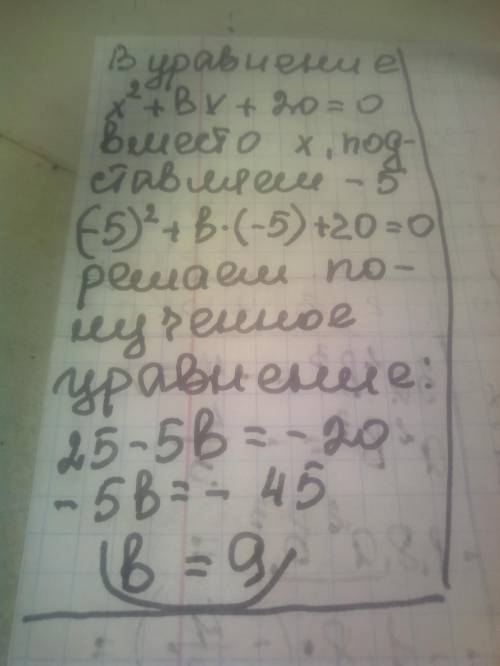 В уравнение
x² + вх + 20 = 0
вместо х, под-
ставляем - 5
(-5)² + в·(-5) + 20 = 0
решаем по-
лученное
уравнение:
25 - 5в = - 20
- 5в = - 45
в = 9